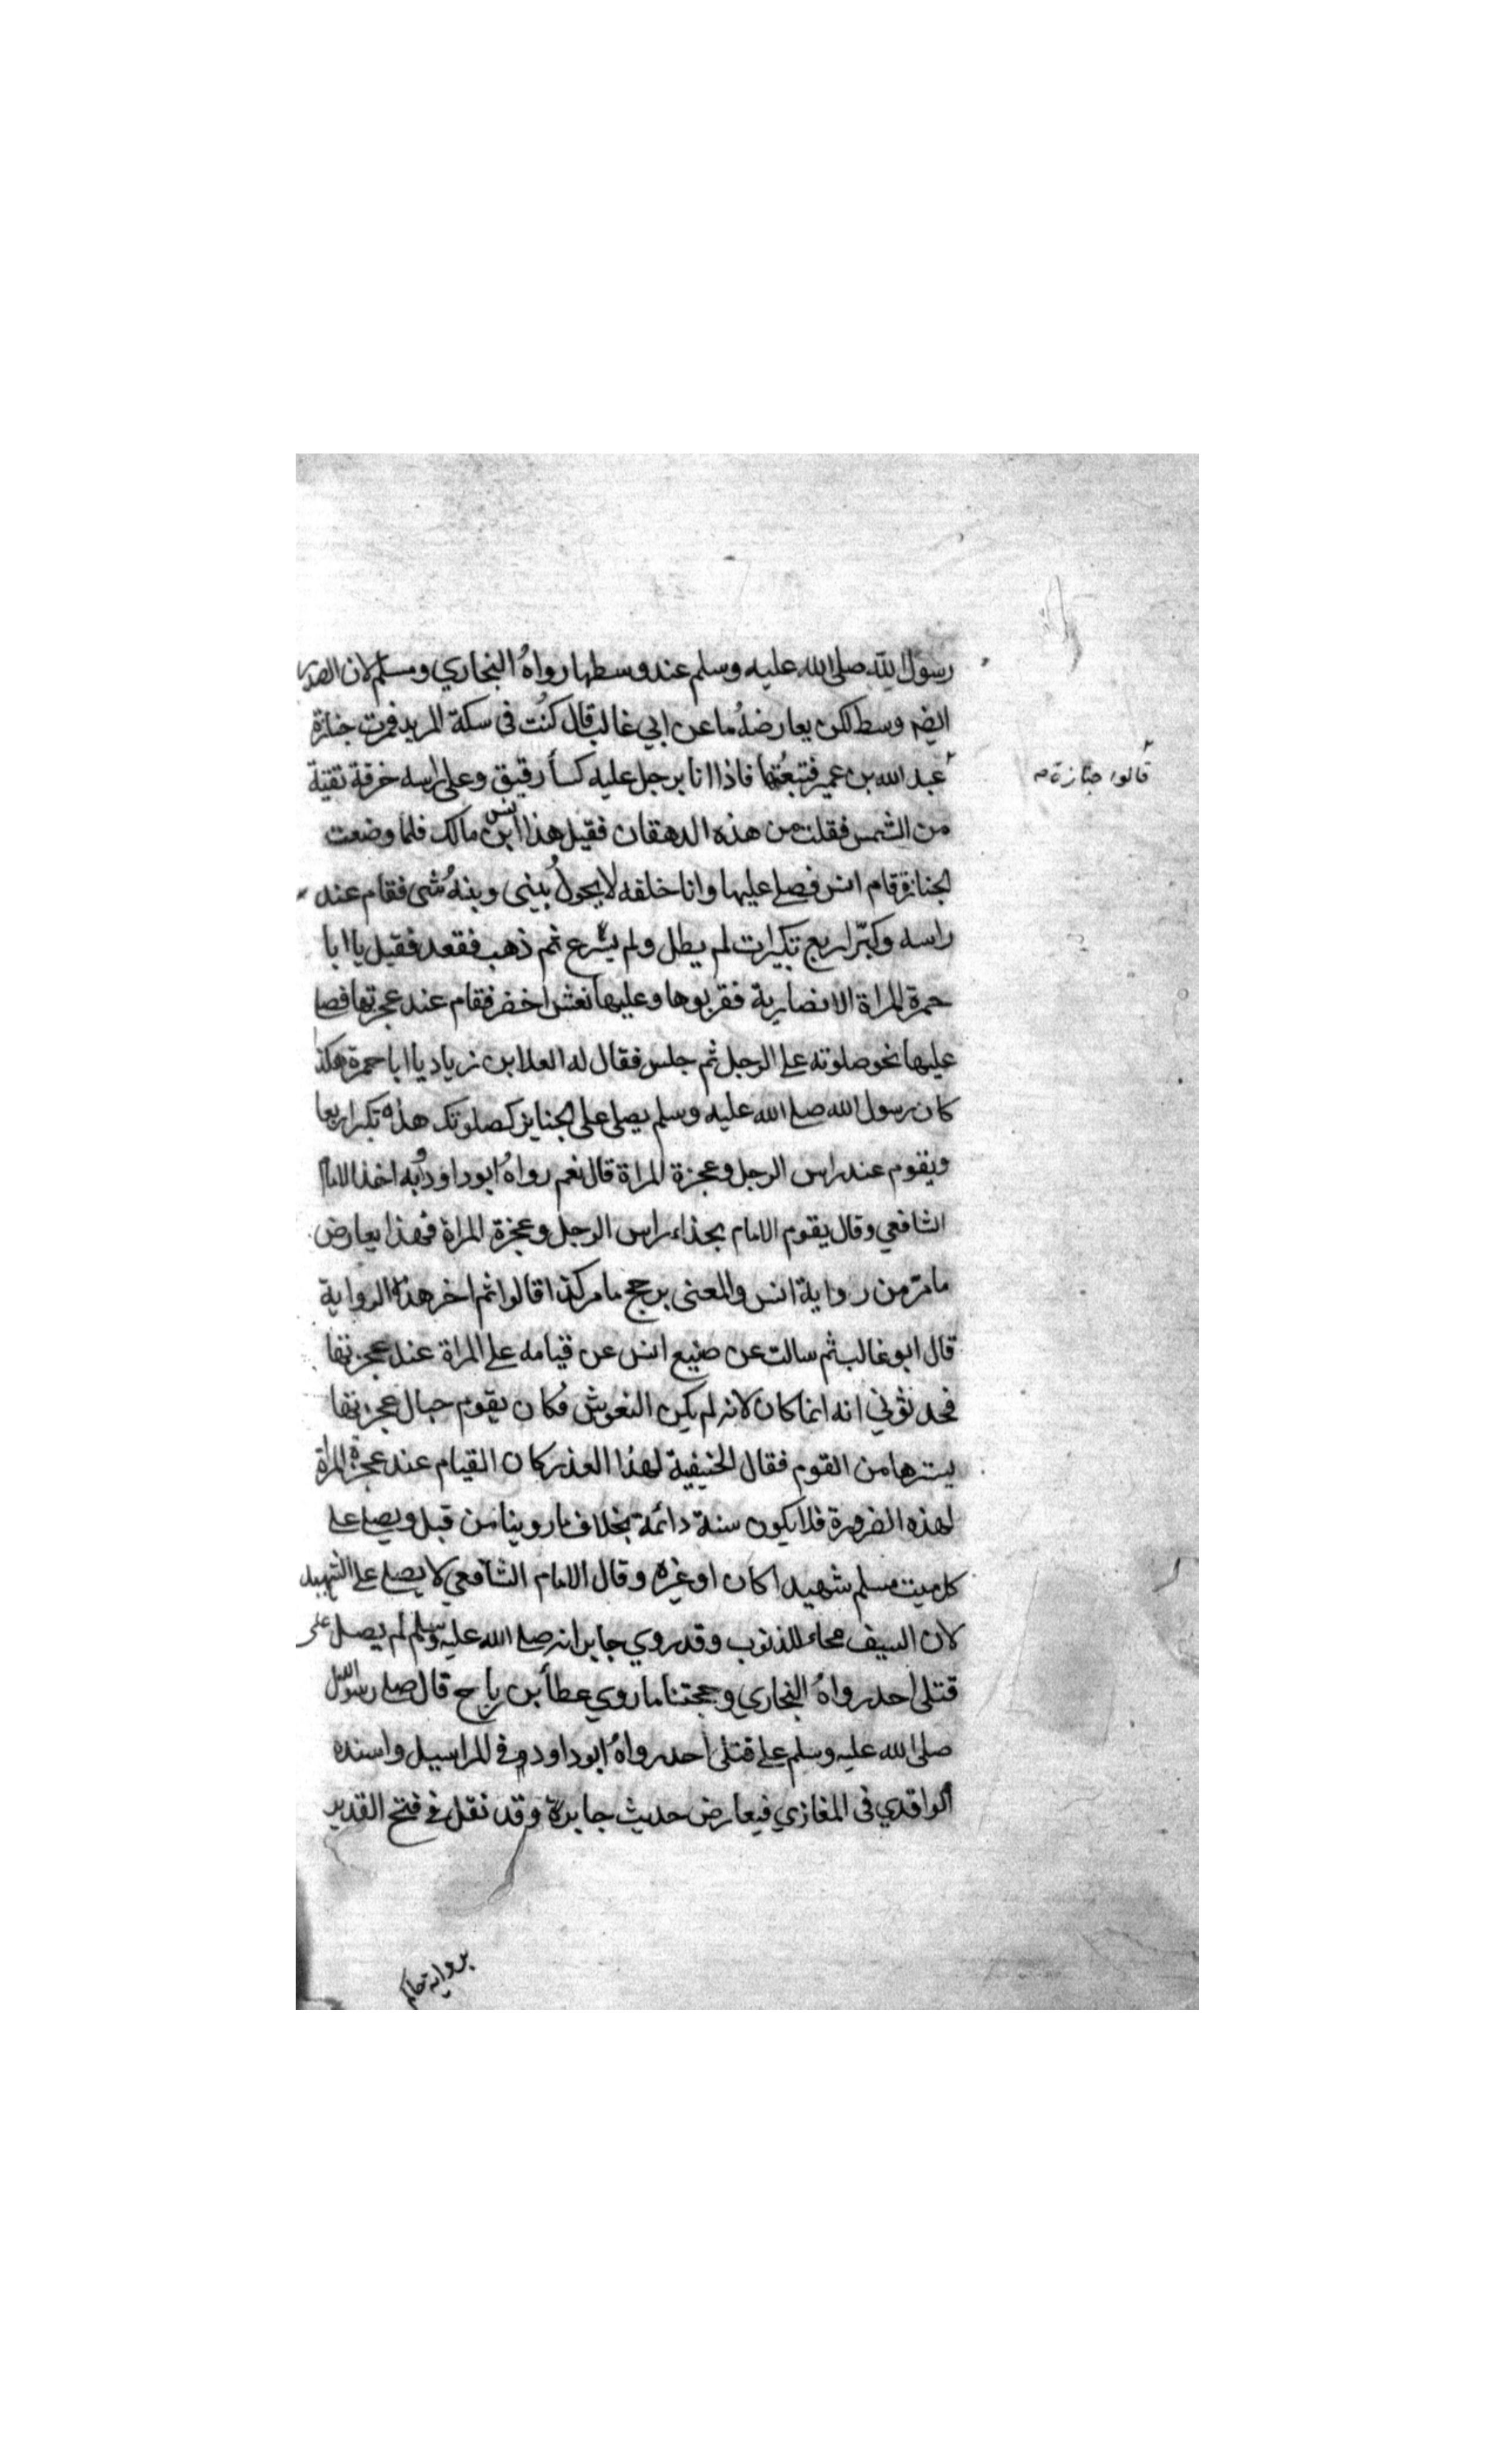 رسول الله صلى الله عليه وسلم عند وسطها رواه البخاري ومسلم لان الصدر
ايضا وسط لكن يعارضه ما عن ابي غالب قال كنت في سكة المربد فمرت جنازة
قالوا جنازة م
عبد الله بن عمير فتبعتها فاذا انا برجل عليه كسأ رقيق وعلى راسه خرقة تقية
من الشمس فقلت من هذه الدهقان فقيل هذا انس بن مالك فلما وضعت
الجنازة قام انس فصلى عليها وانا خلفه لا يحول بيني وبينه شي فقام عند
راسه وكبر اربع تكبيرات لم يطل ولم يسرع ثم ذهب فقعد فقيل يا ابا
حمزة المراة الانصارية فقربوها وعليها نعش اخضر فقام عند عجزتها فصلى
عليها نحو صلوته على الرجل ثم جلس فقال له العلا بن زياد يا ابا حمزة هكذا
كان رسول الله صلى الله عليه وسلم يصلي على الجنايز كصلوتك هذه تكبر اربعا
ويقوم عند راس الرجل وعجزة المراة قال نعم رواه ابو داود وبه اخذ الامام
الشافعي وقال يقوم الامام بحذاء راس الرجل وعجزة المراة فهذا يعارض
ما مر من رواية انس والمعنى يرجح ما مر كذا قالوا ثم اخر هذه الرواية
قال ابو غالب ثم سالت عن صنيع انس عن قيامه على المراة عند عجزتها
فحدثوني انه انما كان لانه لم يكن النعوش فكان يقوم حيال عجزتها
يسترها من القوم فقال الحنيفية لهذا العذر كان القيام عند عجزة المراة
لهذه الضرورة فلا يكون سنة دائمة بخلاف ما روينا من قبل ويصلى على
كل ميت مسلم شهيدا كان او غيره وقال الامام الشافعي لا يصلى على الشهيد
لان السيف محاء للذنوب وقد روي جابر انه صلى الله عليه وسلم لم يصل على
قتلى احد رواه البخاري وحجتنا ما روي عطأ بن رباح قال صلى رسول الله
صلى الله عليه وسلم على قتلى احد رواه ابو داود في المراسيل واسنده
الواقدي في المغازي فيعارض حديث جابر وقد نقل في فتح القدير
برواية حاكم